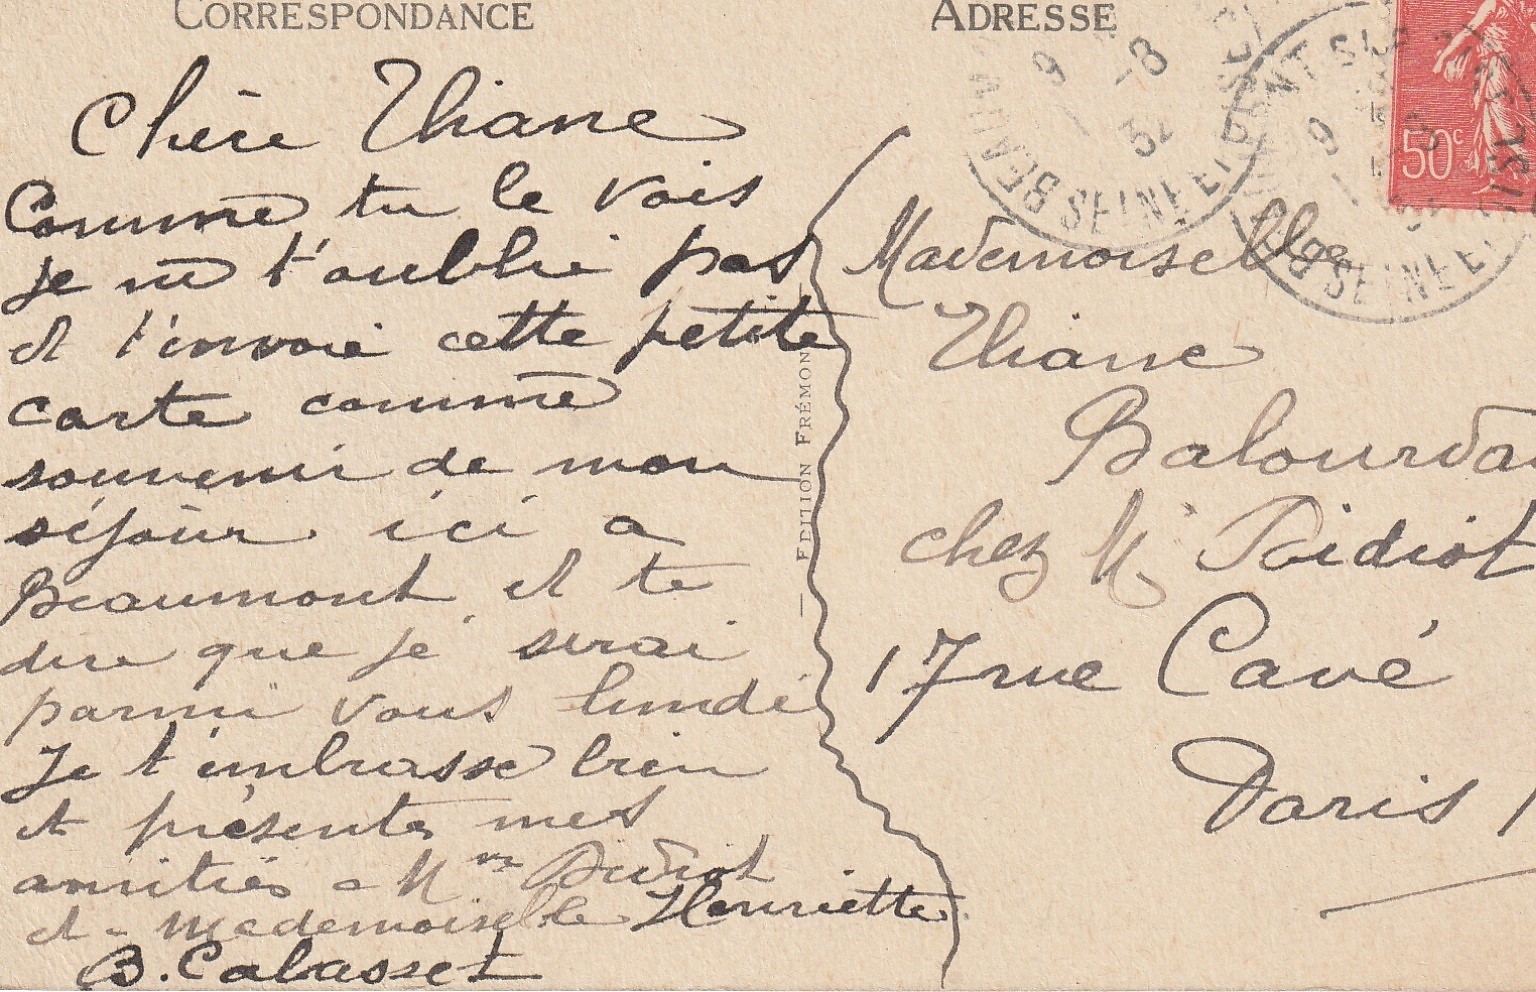 CORRESPONDANCE
Chère Thiane
Comme tu le vois
je ne t'oublie pas
et t'envoie cette petite
carte comme
souvenir de mon
séjour ici a
Beaumont et te
dire que je serai
parmi vous lundi
Je t'embrasse bien
et présente mes
amitiés a Mme Didiot
et a Mademoiselle Henriette
B. Cabasset
EDITION FRÉMON
ADRESSE
9 -8
32
BEAUMONT S
SEINE ET OISE
50c
Mademoiselle
Thiane
Balourda
chez M
17 rue Cavé
Paris 1